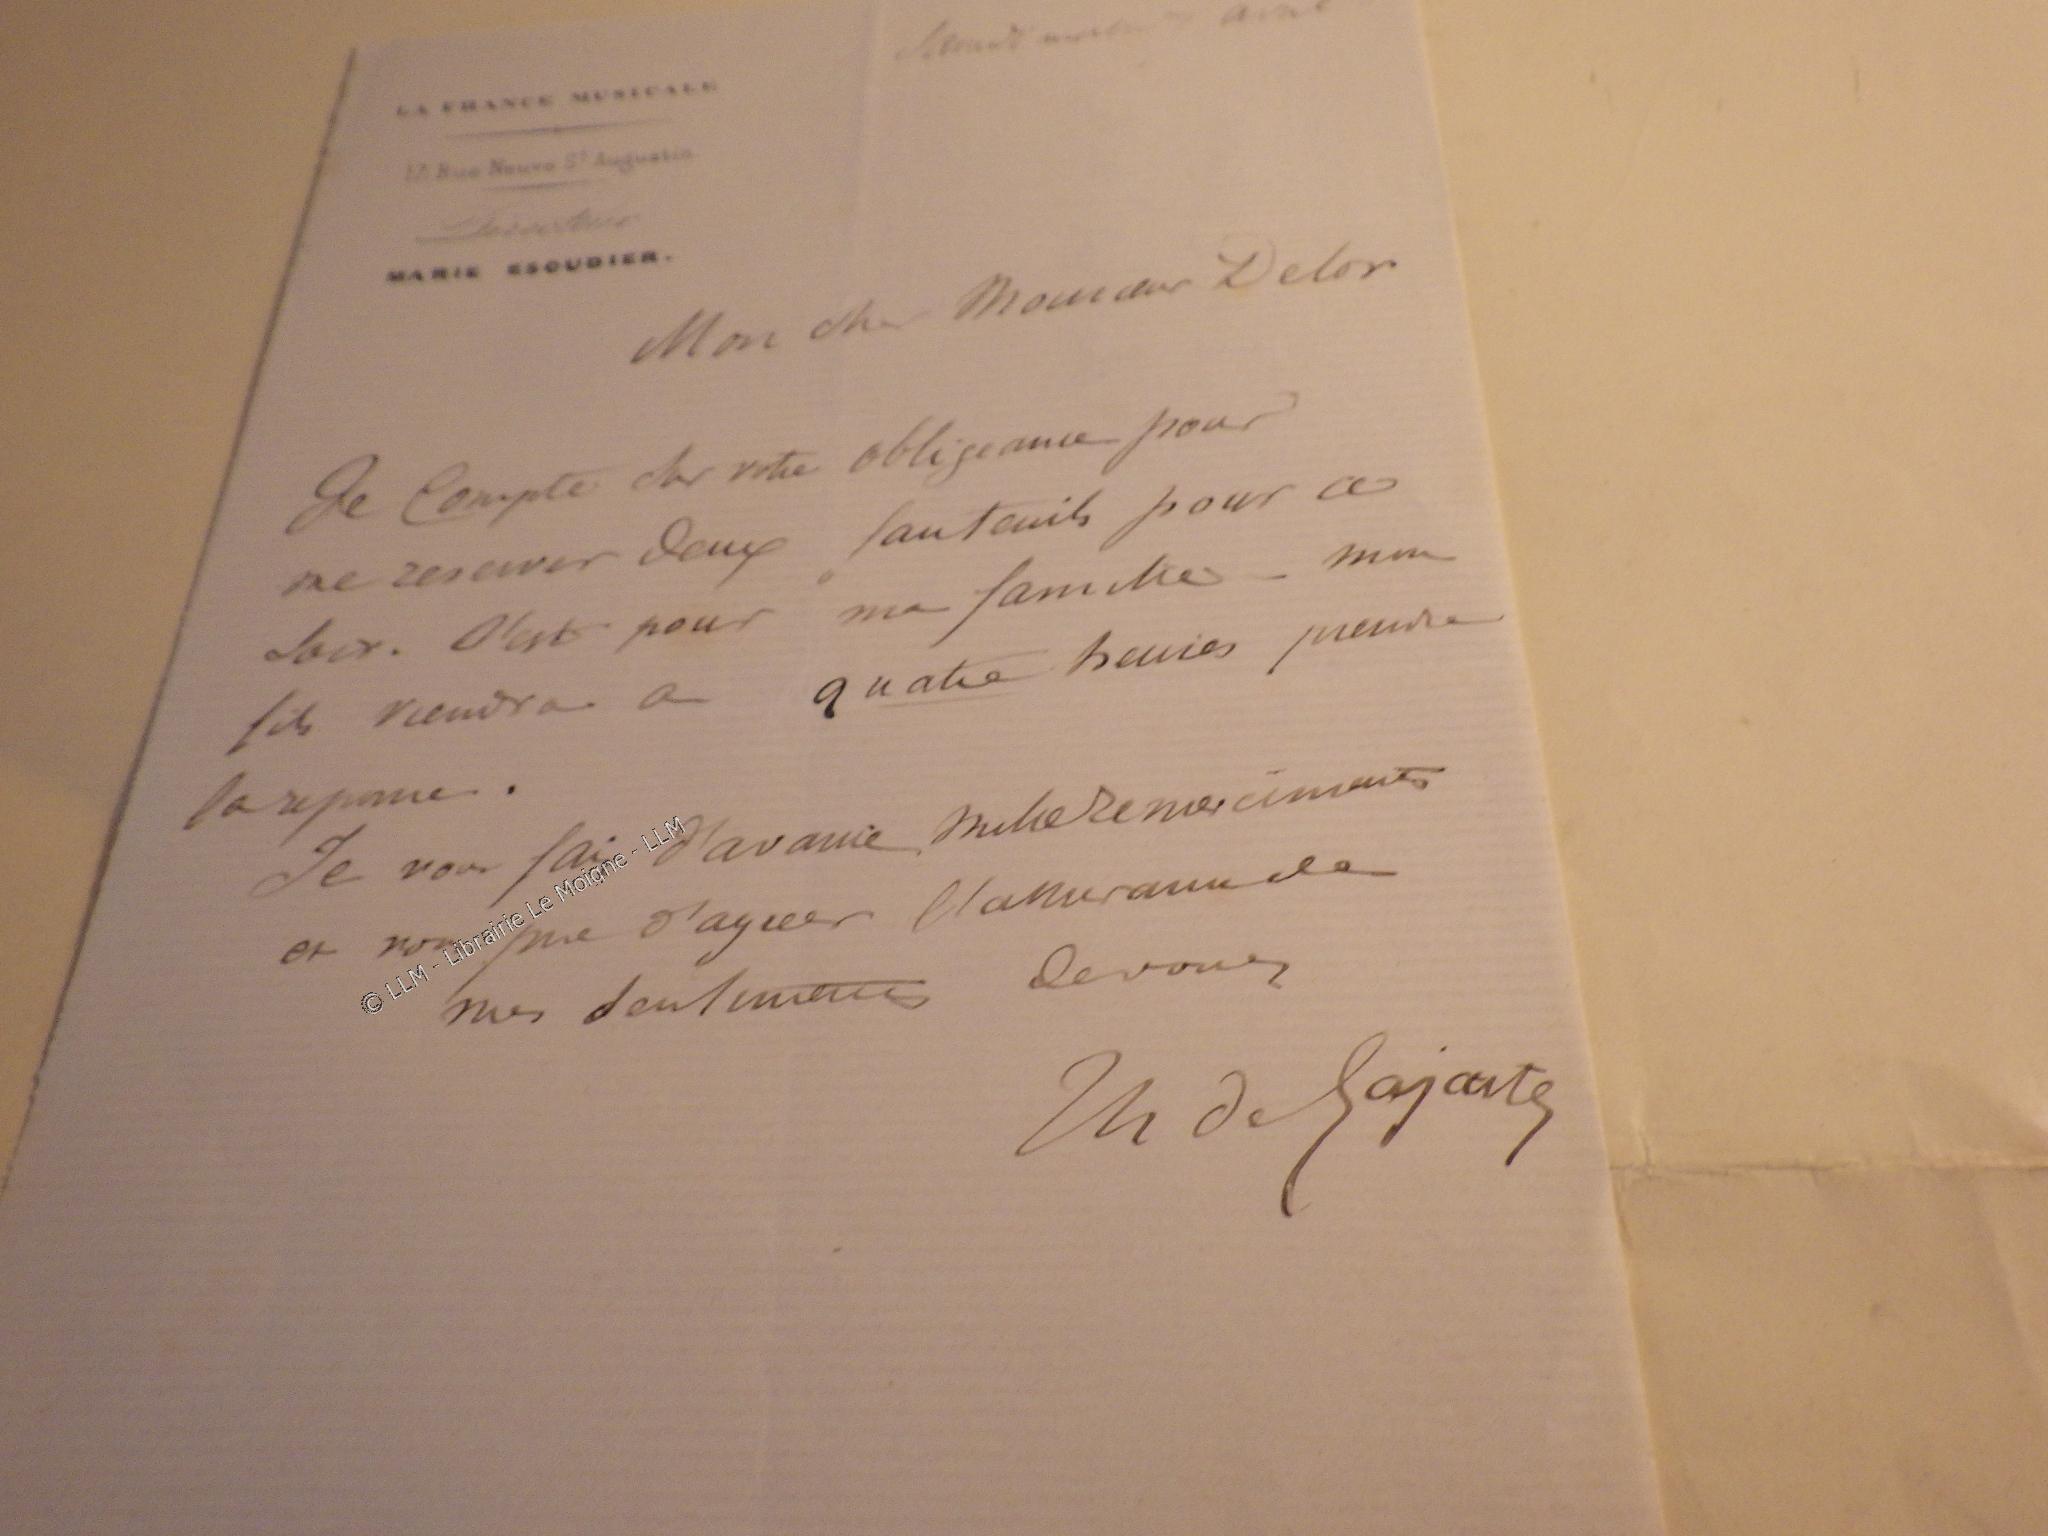 avril
LA FRANCE MUSICALE
12, Rue Neuve St Augustin
Directeur
MARIE ESCUDIER.
Mon cher Monsieur Delor
Je Compte sur votre obligeance pour
me reserver deux fauteuils pour ce
soir. C'est pour ma famille - mon
fils viendra a quatre heures prendre
la reponse.
Je vous fai d'avance mille remerciments
et vous prie d'agreer l'assurance de
mes sentiments devoués
Th de Lajarte
© LLM - Librairie Le Moigne - LLM